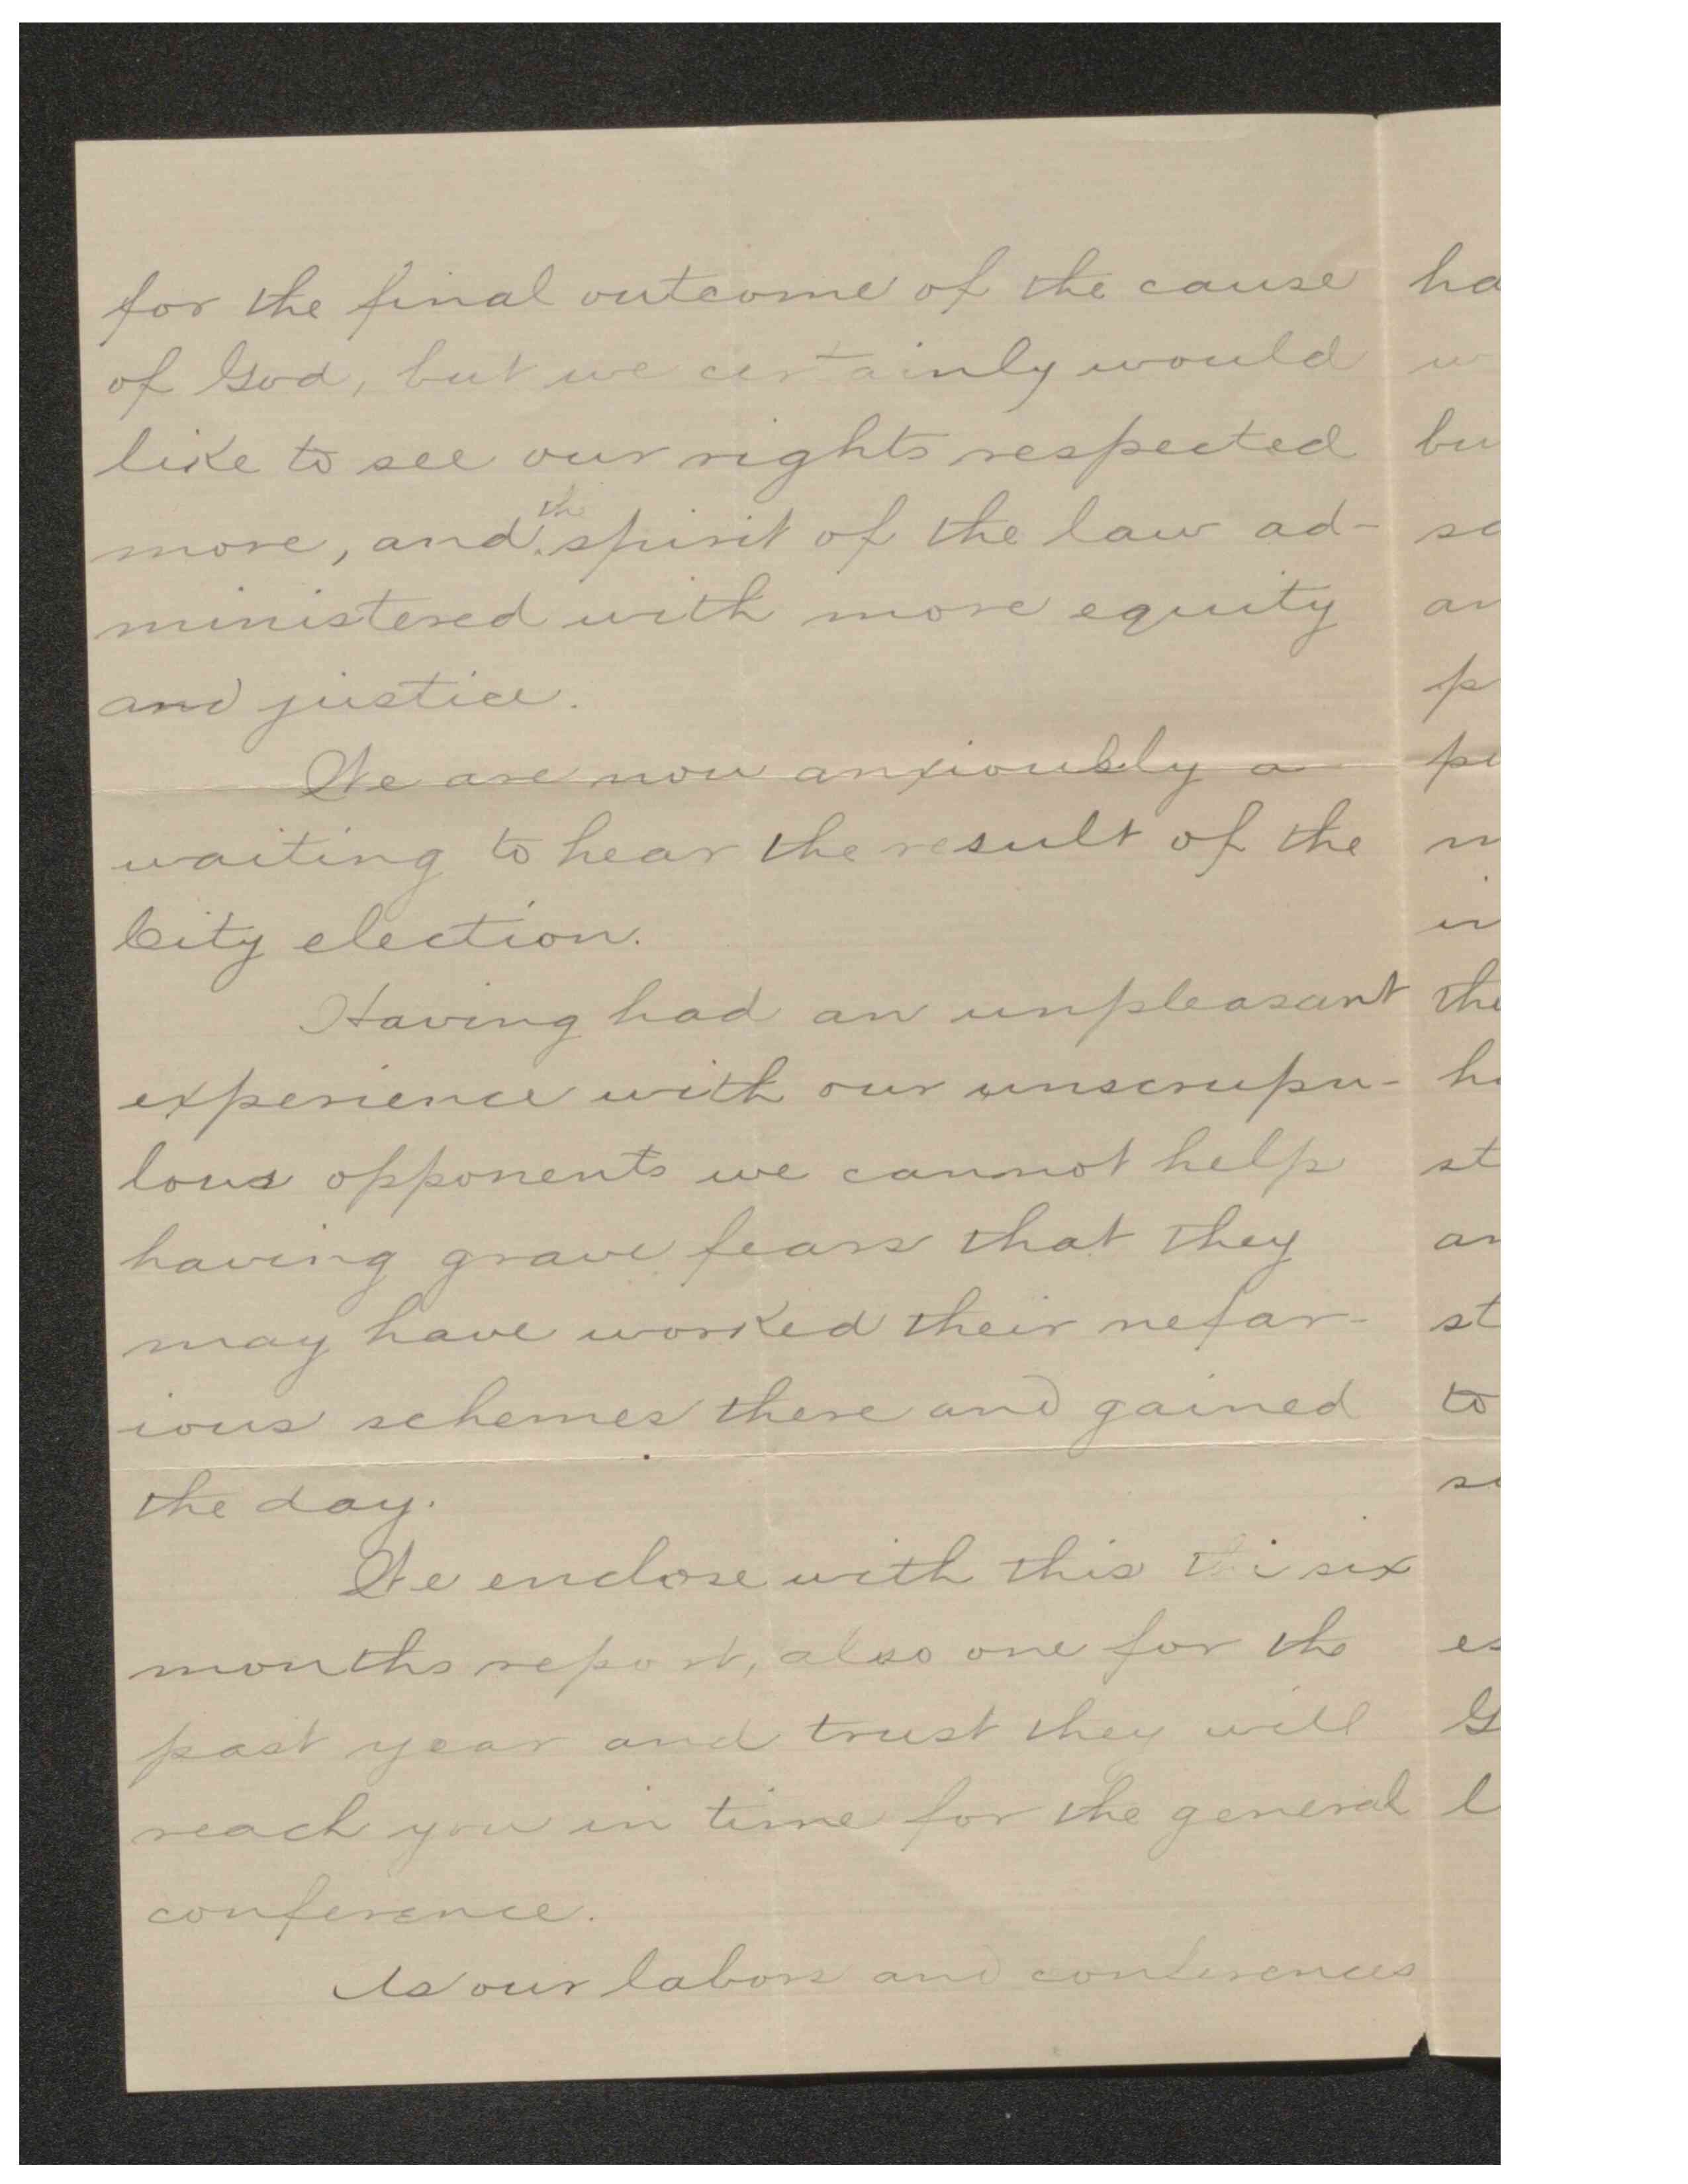 for the final outcome of the cause
of God, but we certainly would
like to see our rights respected
more, and the spirit of the law ad-
ministered with more equity
and justice.
We are now anxiously a
waiting to hear the result of the
City election.
Having had an unpleasant
experience with our unscrupu-
lous opponents we cannot help
having grave fears that they
may have worked their nefar-
ious schemes there and gained
the day.
We enclose with this the six
months report, also one for the
past year and trust they will
reach you in time for the general
conference.
As our labors and conferences
ha
w
bu
so
an
p
pe
m
in
the
ha
st
an
st
to
se
es
G
l